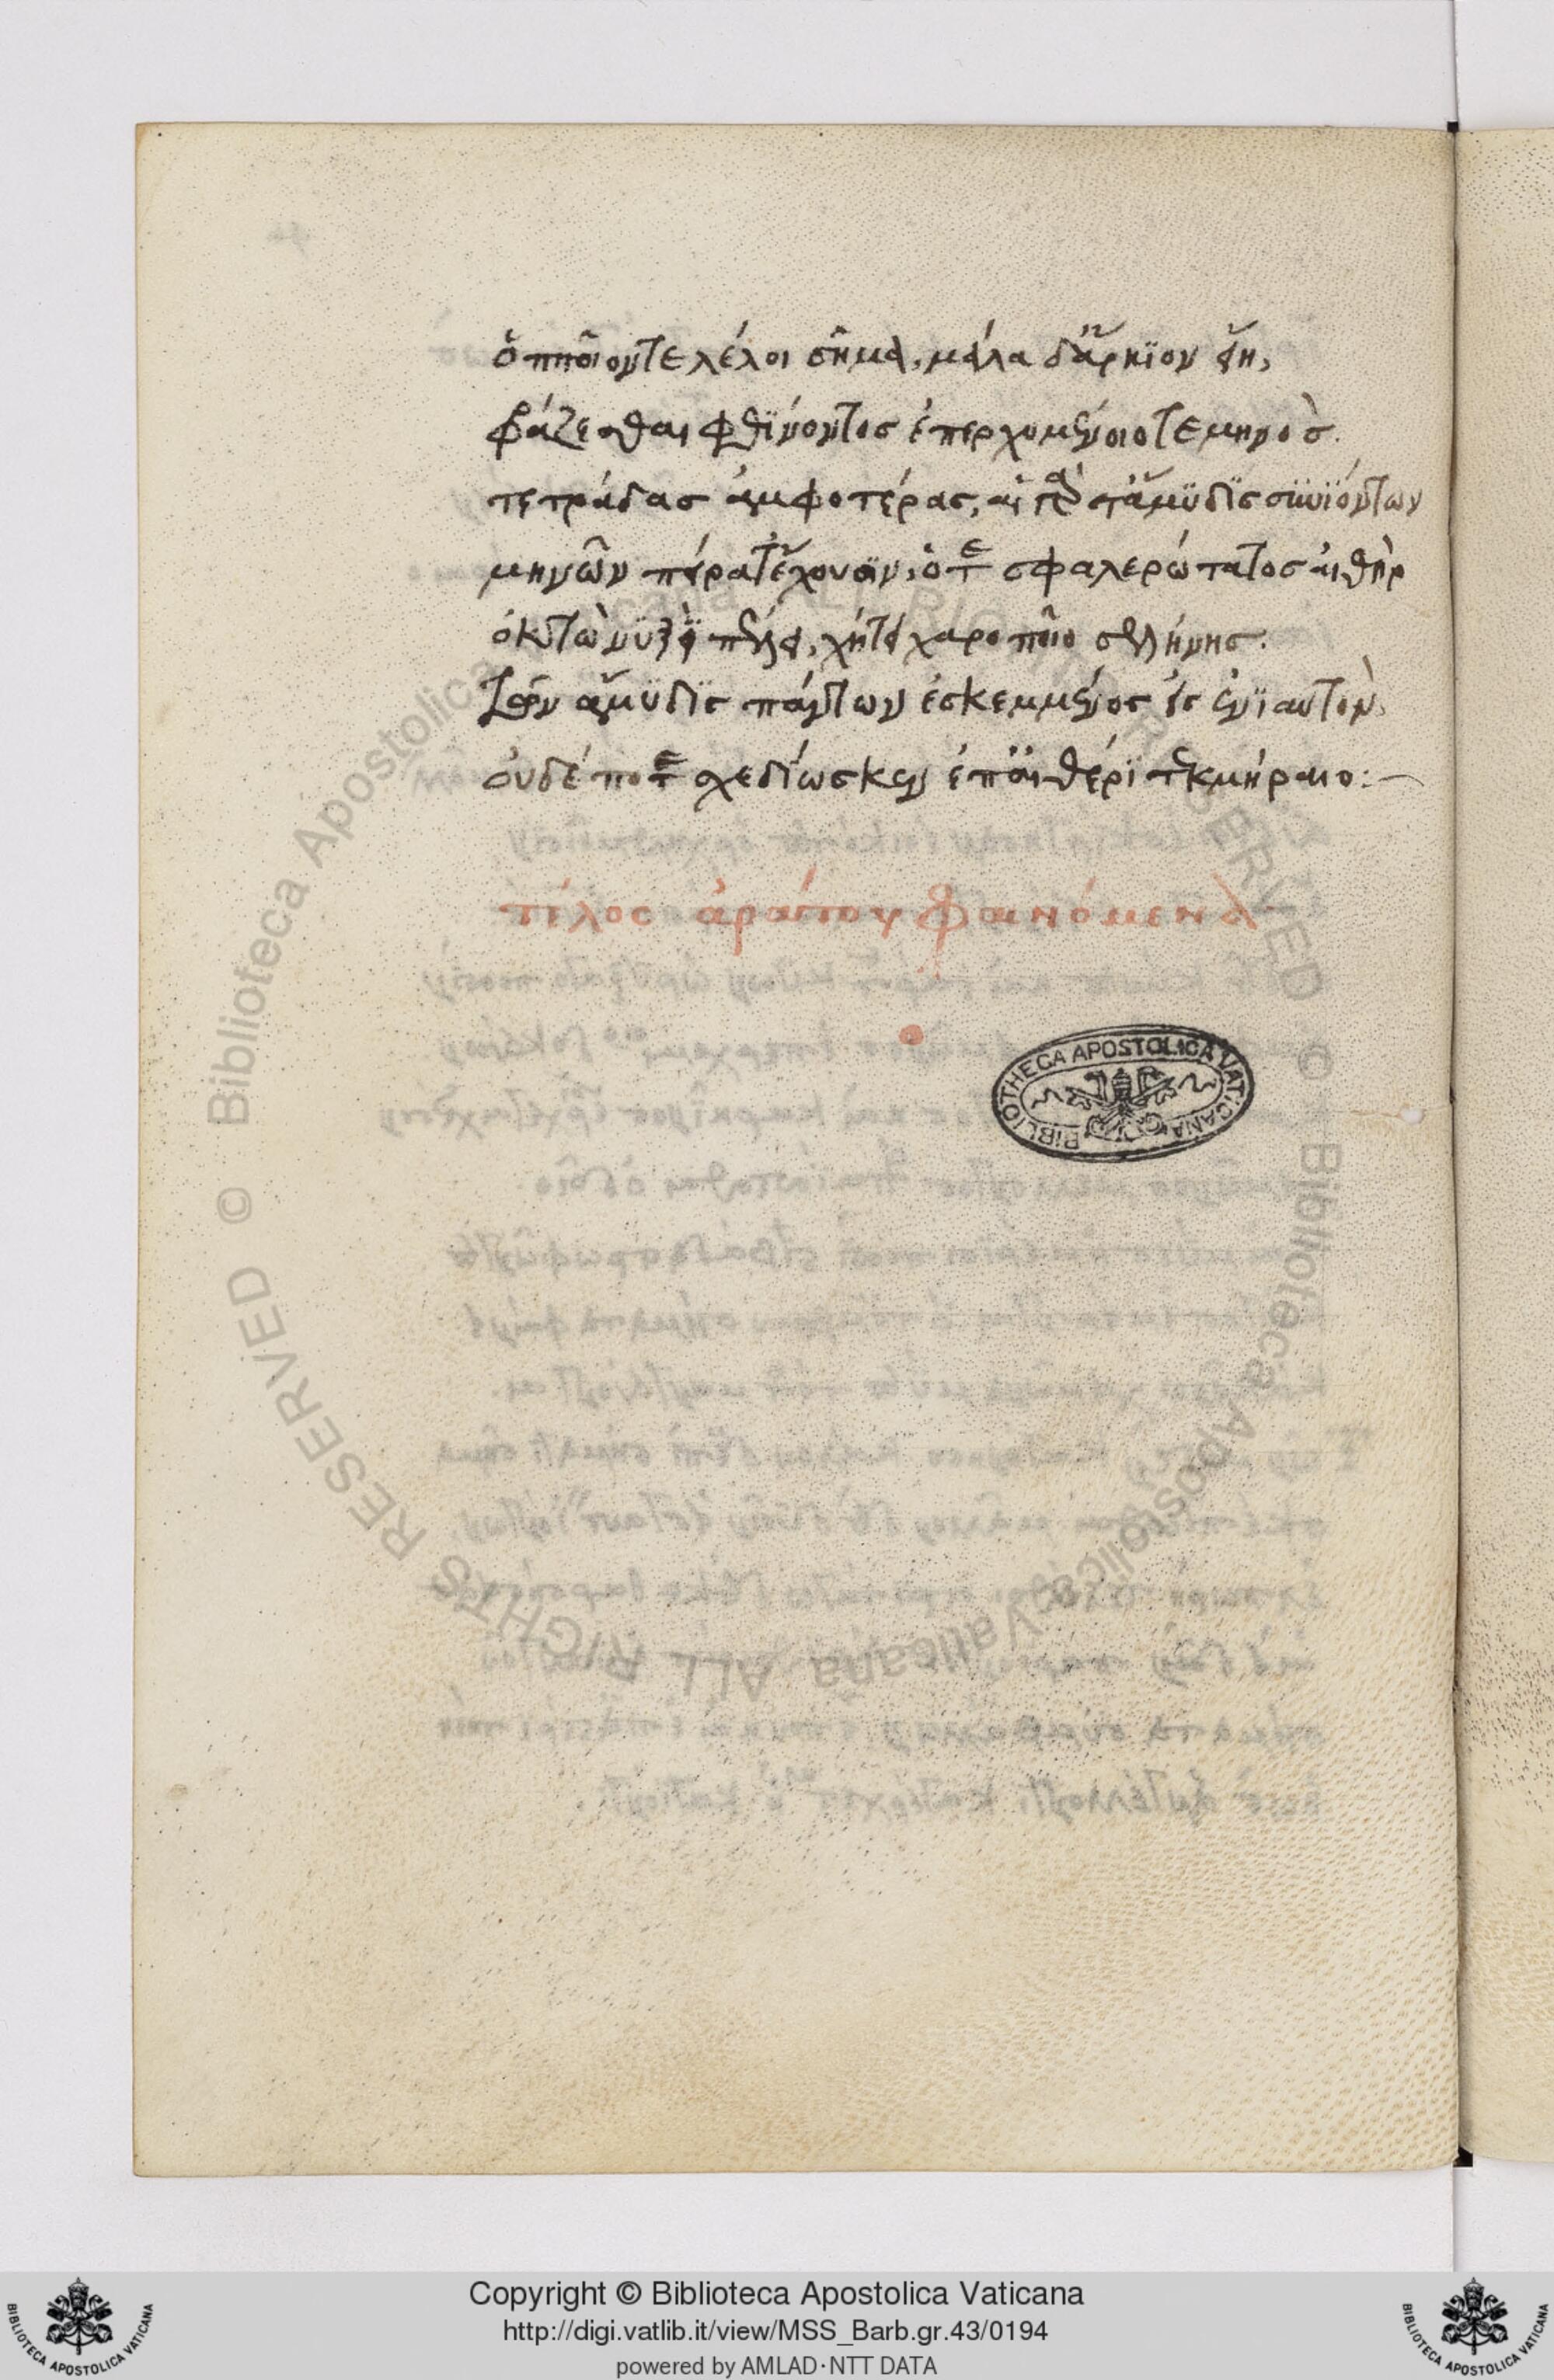 ὁπποῖον τελέλοι σῆμα, μάλα δ' ἄρκϊον εἴη,
φράζεσθαι φθϊνοντος ἐπερχομένοιο τε μηνὸς.
τετράδας ἀμφοτέρας, αἱ γάρ τ' ἄμϋδϊς σϋνϊόντων
μηνῶν πέρατ' ἔχουσιν, ὅτε σφαλερώτατος αἰθὴρ
ὀκτὼ νϋξὶ πέλει, χήτεϊ χαροποῖο σελήνης.
Τῶν ἄμϋδϊς πάντων ἐσκεμμένος εἰς ἐνϊαυτὸν,
οὐδέποτε σχεδίως κεν ἐπ' αἰθέρϊ τεκμήραιο:
τέλος ἀράτου φαινόμενα
BIBLIOTHECA APOSTOLICA VATICANA
© Biblioteca Apostolica Vaticana ALL RIGHTS RESERVED
© Biblioteca Apostolica Vaticana ALL RIGHTS RESERVED
Copyright © Biblioteca Apostolica Vaticana
http://digi.vatlib.it/view/MSS_Barb.gr.43/0194
powered by AMLAD·NTT DATA
BIBLIOTECA APOSTOLICA VATICANA
BIBLIOTECA APOSTOLICA VATICANA